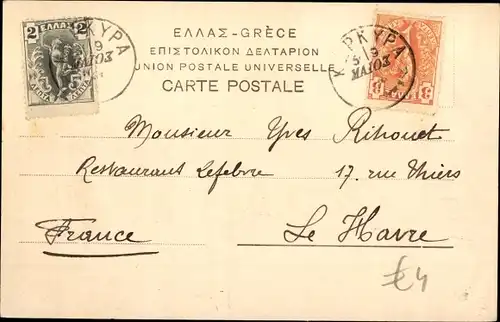 ΕΛΛΑΣ-GRÈCE
ΕΠΙΣΤΟΛΙΚΟΝ ΔΕΛΤΑΡΙΟΝ
UNION POSTALE UNIVERSELLE
CARTE POSTALE
2
ΕΛΛΑΣ
ΛΕΠΤΑ ΛΕΠΤΑ
ΚΥΡΑ
9
ΜΑΪΟΣ
ΚΕΡΚΥΡΑ
5 9
ΜΑΪΟΣ
3 3
Monsieur Yves Rihouet
Restaurant Lefebvre 17. rue Thiers
France Le Havre
£4